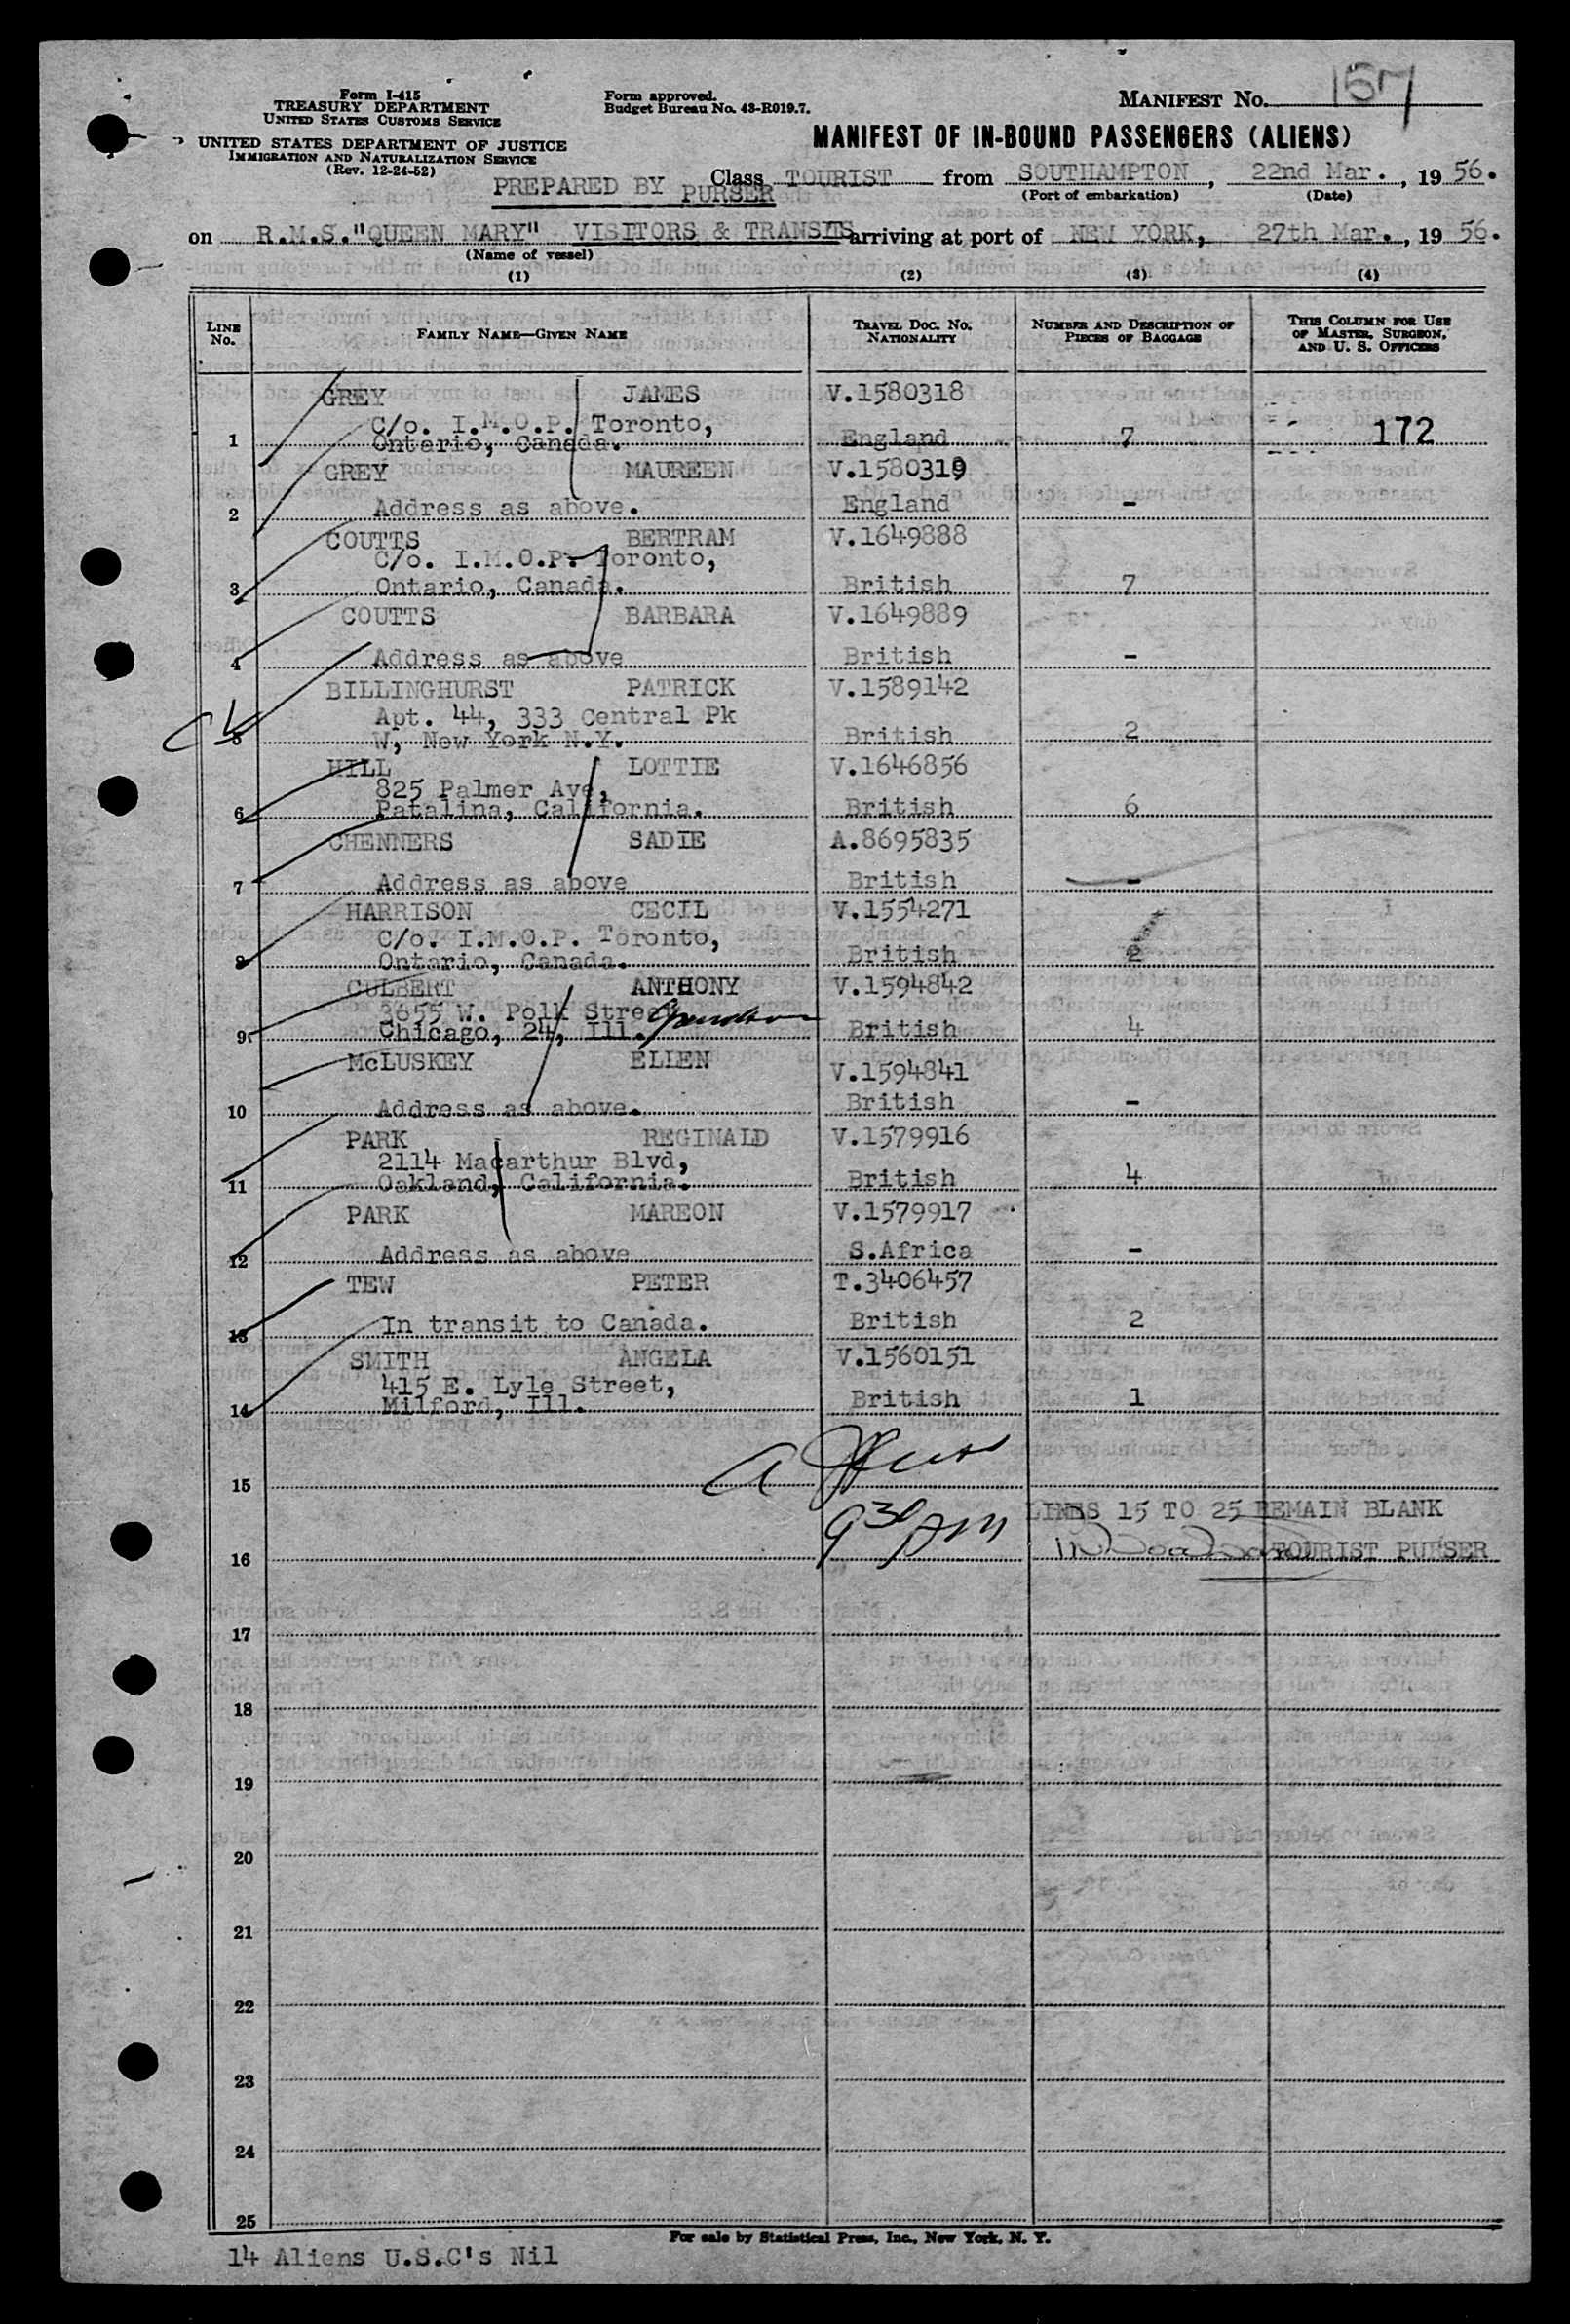 Form I-415
TREASURY DEPARTMENT
UNITED STATES CUSTOMS SERVICE
UNITED STATES DEPARTMENT OF JUSTICE
IMMIGRATION AND NATURALIZATION SERVICE
(Rev. 12-24-52)
Form approved.
Budget Bureau No. 43-R019.7.
MANIFEST NO. 157
MANIFEST OF IN-BOUND PASSENGERS (ALIENS)
PREPARED BY PURSER
Class TOURIST from SOUTHAMPTON, 22nd Mar., 1956.
(Port of embarkation) (Date)
on R.M.S."QUEEN MARY" VISITORS & TRANSITS arriving at port of NEW YORK, 27th Mar., 1956.
(Name of vessel)
(1) (2) (3) (4)
LINE NO. FAMILY NAME—GIVEN NAME TRAVEL DOC. NO. NATIONALITY NUMBER AND DESCRIPTION OF PIECES OF BAGGAGE THIS COLUMN FOR USE OF MASTER, SURGEON, AND U. S. OFFICERS
GREY JAMES V.1580318
C/o. I.M.O.P. Toronto,
1 Ontario, Canada. England 7 172
GREY MAUREEN V.1580319
2 Address as above. England -
COUTTS BERTRAM V.1649888
C/o. I.M.O.P. Toronto,
3 Ontario, Canada. British 7
COUTTS BARBARA V.1649889
4 Address as above British -
BILLINGHURST PATRICK V.1589142
Apt. 44, 333 Central Pk
5 W, New York N.Y. British 2
HILL LOTTIE V.1646856
825 Palmer Ave,
6 Patalina, California. British 6
CHENNERS SADIE A.8695835
7 Address as above British -
HARRISON CECIL V.1554271
C/o. I.M.O.P. Toronto,
8 Ontario, Canada. British 2
CULBERT ANTHONY V.1594842
3655 W. Polk Street
9 Chicago, 24, Ill. British 4
McLUSKEY ELIEN V.1594841
10 Address as above. British -
PARK REGINALD V.1579916
2114 Macarthur Blvd,
11 Oakland, California. British 4
PARK MAREON V.1579917
12 Address as above S.Africa -
TEW PETER T.3406457
13 In transit to Canada. British 2
SMITH ANGELA V.1560151
415 E. Lyle Street,
14 Milford, Ill. British 1
15
LINES 15 TO 25 REMAIN BLANK
9 30 PM
16 TOURIST PURSER
17
18
19
20
21
22
23
24
25
For sale by Statistical Press, Inc., New York, N. Y.
14 Aliens U.S.C's Nil